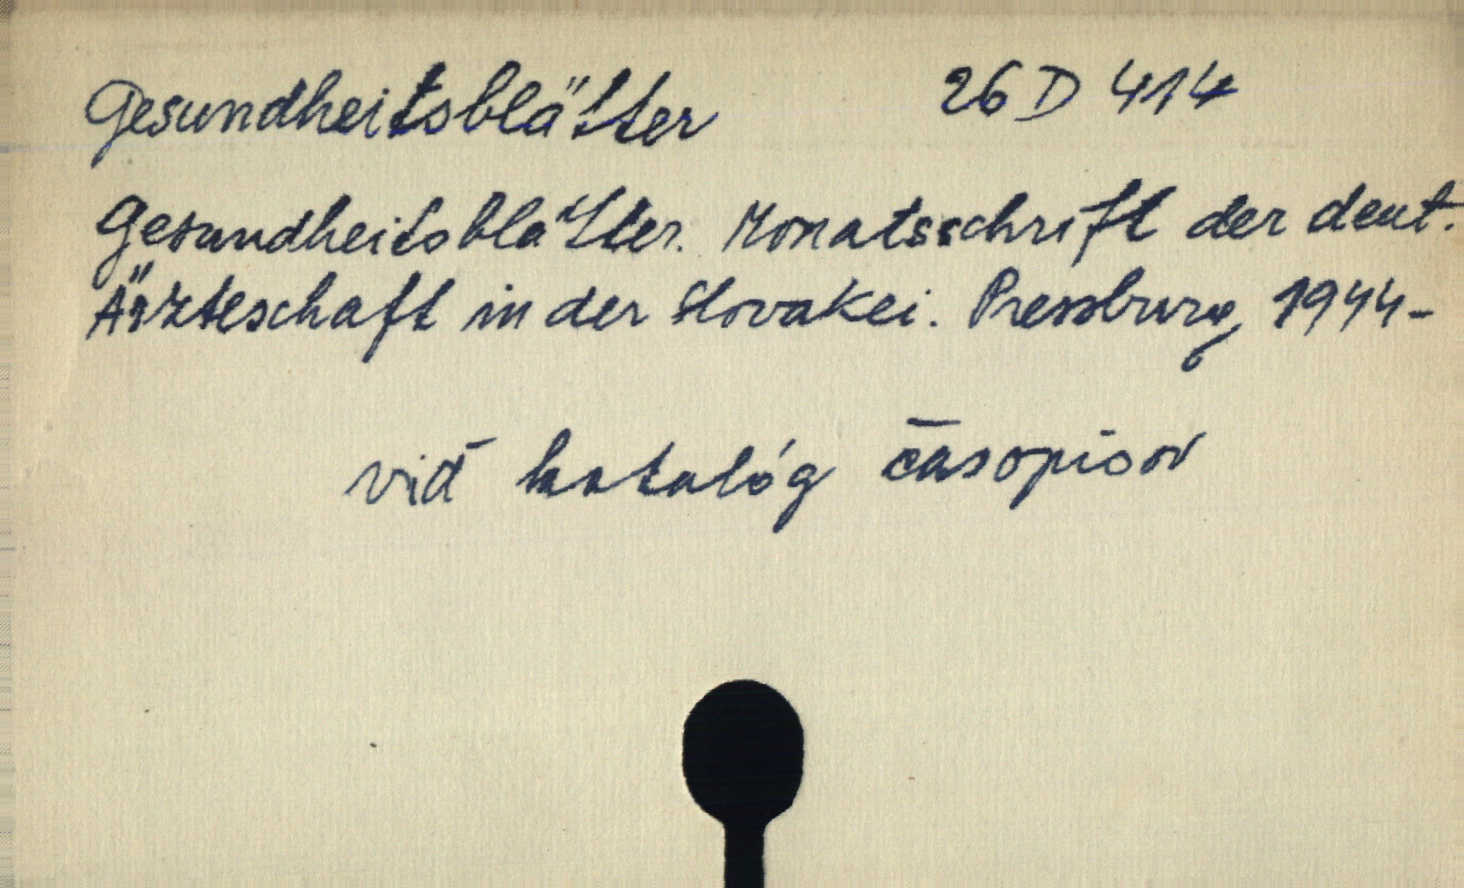 Gesundheitsblätter 26 D 414
Gesundheitsblätter. Monatsschrift der deut.
Ärzteschaft in der Slovakei. Pressburg, 1944-
viď katalóg časopisov